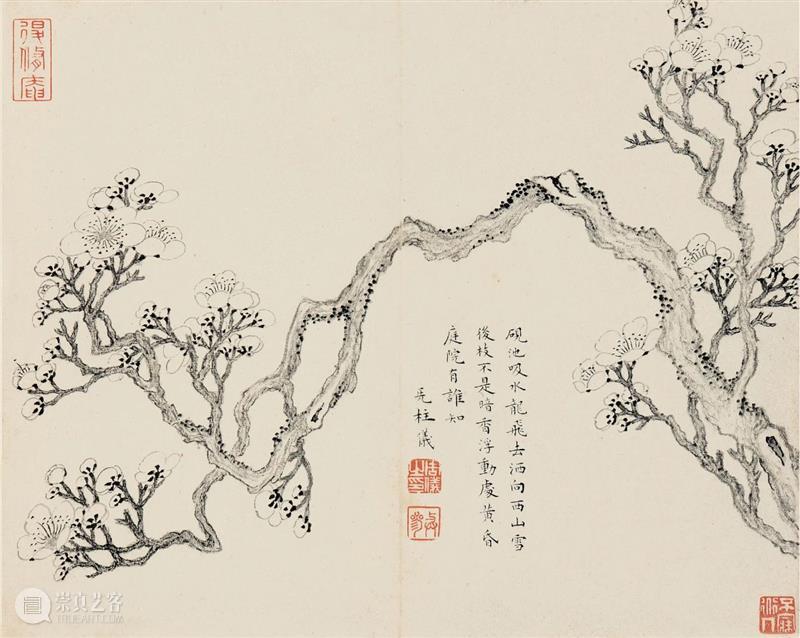 硯池吸水龍飛去洒向西山雪
後枝不是暗香浮動處黃昏
庭院有誰知
柱儀
崇真艺客
TRUEART.COM